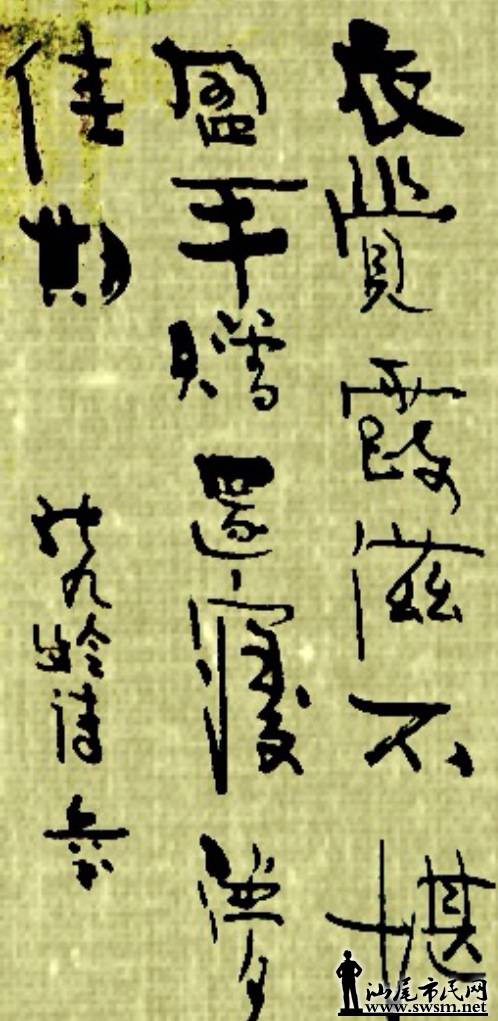 衣覺露滋不堪
盈手贈還寢夢
佳期
张九龄诗
汕尾市民网
www.swsm.net